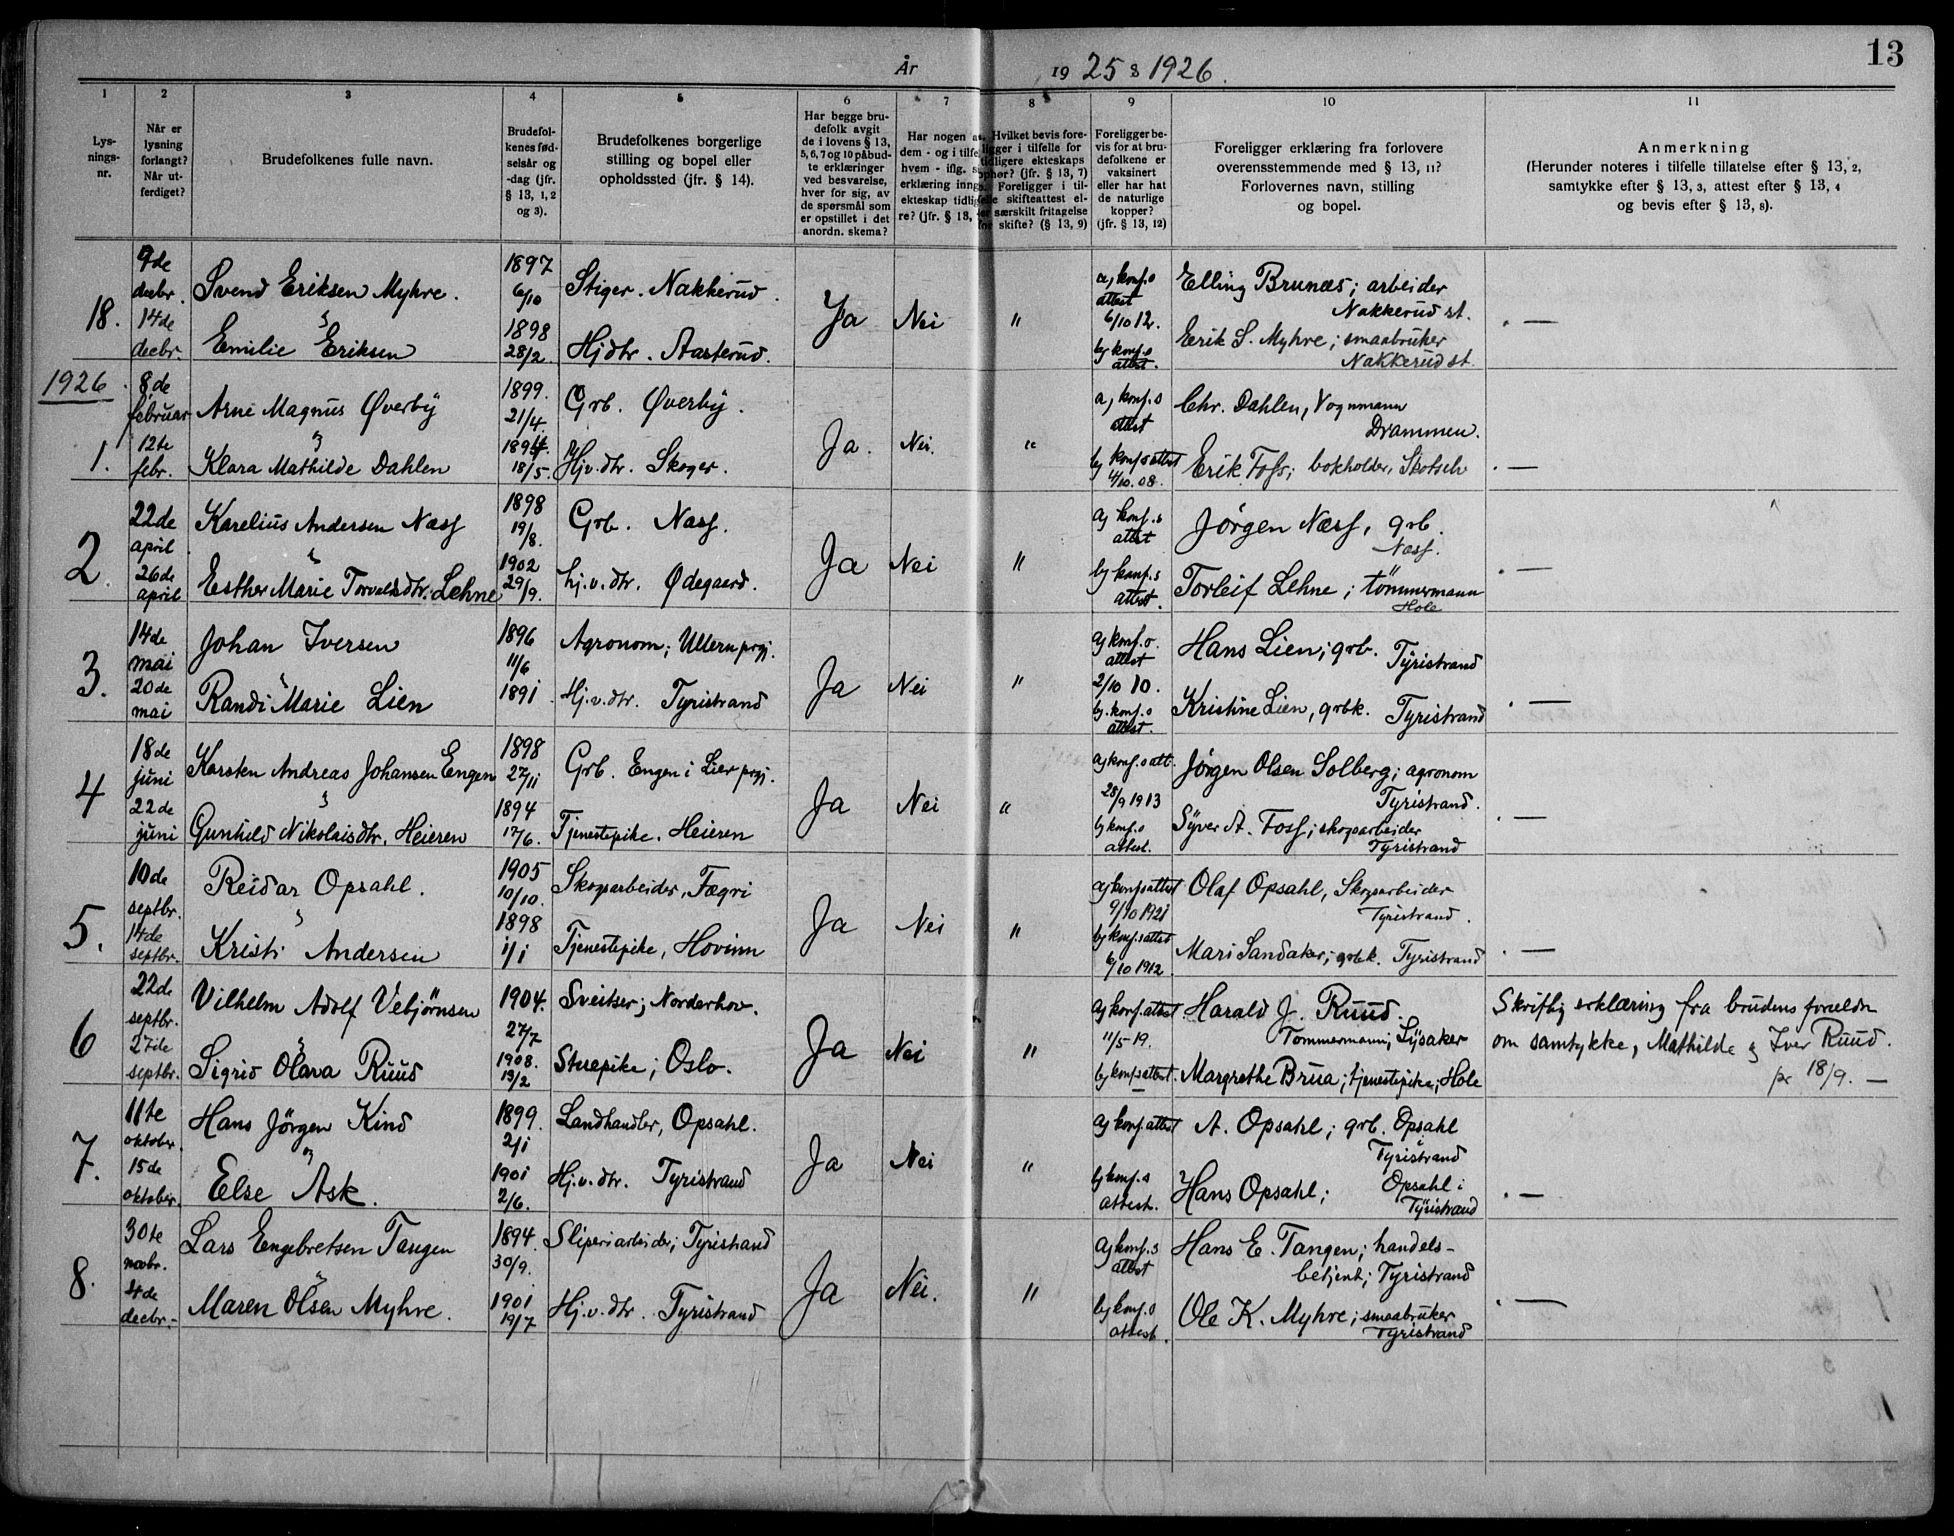 13
År 1925 & 1926.
1 2 3 4 5 6 7 8 9 10 11
Lys-
nings-
nr.
Når er
lysning
forlangt?
Når ut-
ferdiget?
Brudefolkenes fulle navn.
Brudefol-
kenes fød-
selsår og
-dag (jfr.
§ 13, 1, 2
og 3).
Brudefolkenes borgerlige
stilling og bopel eller
opholdssted (jfr. § 14).
Har begge bru-
defolk avgit
de i lovens § 13,
5, 6, 7 og 10 påbud-
te erklæringer
ved besvarelse,
hver for sig, av
de spørsmål som
er opstillet i det
anordn. skema?
Har nogen av
dem - og i tilfel
hvem - iflg. s
erklæring inng
ekteskap tidlig
re? (jfr. § 13,
Hvilket bevis fore-
ligger i tilfelle for
tidligere ekteskaps
ophør? (jfr. § 13, 7)
Foreligger i til-
felle skifteattest el-
ler særskilt fritagelse
for skifte? (§ 13, 9)
Foreligger be-
vis for at bru-
defolkene er
vaksinert
eller har hat
de naturlige
kopper?
(jfr. § 13, 12)
Foreligger erklæring fra forlovere
overensstemmende med § 13, 11?
Forlovernes navn, stilling
og bopel.
Anmerkning
(Herunder noteres i tilfelle tillatelse efter § 13, 2,
samtykke efter § 13, 3, attest efter § 13, 4
og bevis efter § 13, 8).
18.
9de
decbr.
14de
decbr.
Svend Eriksen Myhre.
&
Emilie Eriksen
1897
6/10
1898
28/2
Stiger. Nakkerud.
Hjdtr. Aasterud.
Ja Nei "
a, konf.s
attest
6/10 12.
b, konf.s
attest.
Elling Brunæs; arbeider
Nakkerud st.
Erik S. Myhre; smaabruker
Nakkerud st.
. —
1926
1.
8de
februar
12te
febr.
Arne Magnus Øverby
&
Klara Mathilde Dahlen
1899.
21/4.
1894
18/5.
Grb. Øverby.
Hj.v.dtr. Skoger.
Ja. Nei. "
a, konf.s
attest
b, konfsattest
4/10. 08.
Chr. Dahlen, Vognmann
Drammen.
Erik Foss; bokholder, Skotselv
. —
2.
22de
april
26de
april
Karelius Andersen Næss
&
Esther Marie Torvaldsdtr. Lehne
1898
19/8.
1902
29/9.
Grb. Næss.
hj.v.dtr. Ødegaard.
Ja Nei "
a, konf.s
attest
b, konf.s
attest.
Jörgen Næss, grb.
Næss.
Torleif Lehne; tömmermann
Hole
. —
3.
14de
mai
20de
mai
Johan Iversen
&
Randi Marie Lien
1896
11/6
1891
Agronom; Ullern prgj.
Hj.v.dtr. Tyristrand
Ja Nei "
a, konf.s.
attest
2/10 10.
b, konf.s
attest.
Hans Lien; grb. Tyristrand
Kristine Lien, grbk. Tyristrand
. —
4
18de
juni
22de
juni
Karsten Andreas Johansen Engen
&
Gunhild Nikolaisdtr. Heieren
1898
27/11
1894
17/6.
Grb. Engen i Lier prgj.
Tjenestepike. Heieren
Ja Nei "
a, konf.s att.
28/9 1913
b, konf.s
attest.
Jörgen Olsen Solberg; agronom
Tyristrand.
Syver A. Foss; skogsarbeider
Tyristrand
. —
5.
10de
septbr.
14de
septbr.
Reidar Opsahl.
&
Kristi Andersen
1905
10/10.
1898
1/1
Skogsarbeider, Fægri
Tjenestepike, Hovinn
Ja Nei "
a, konfsattest
9/10 1921
b, konfsattest
6/10 1912
Olaf Opsahl, Skogsarbeider
Tyristrand.
Mari Sandaker; grbk. Tyristrand
. —
6
22de
septbr.
27de
septbr.
Vilhelm Adolf Vebjörnsen
&
Sigrid Olava Ruud
1904.
27/7
1908.
19/2
Sveitser; Norderhov.
Stuepike; Oslo.
Ja Nei "
a, konf.attest
11/5-19.
b, konfsattest.
Harald J. Ruud.
Tommermann; Lysaker
Margrethe Brua; tjenestepike; Hole
Skriftlig erklæring fra brudens foreldre
om samtykke, Mathilde og Iver Ruud.
pr 18/9. —
7.
11te
oktober.
15de
oktober.
Hans Jörgen Kind
og
Else Ask.
1899.
2/1
1901
2/6.
Landhandler, Opsahl.
Hj.v.dtr. Tyristrand
Ja Nei "
a, konf.attest
b, konf.s
attest.
A. Opsahl; grb. Opsahl
Tyristrand
Hans Opsahl; Opsahl i
Tyristrand
. —
8.
30te
novbr.
4de
decbr.-
Lars Engebretsen Tangen
&
Maren Olsen Myhre.
1894.
30/9.
1901
19/7
Sliperiarbeider; Tyristrand
Hj.v.dtr. Tyristrand
Ja Nei. "
a, konf.s
attest
b, konf.s
attest.
Hans E. Tangen; handels-
betjent; Tyristrand
Ole K. Myhre; smaabruker
Tyristrand
. —